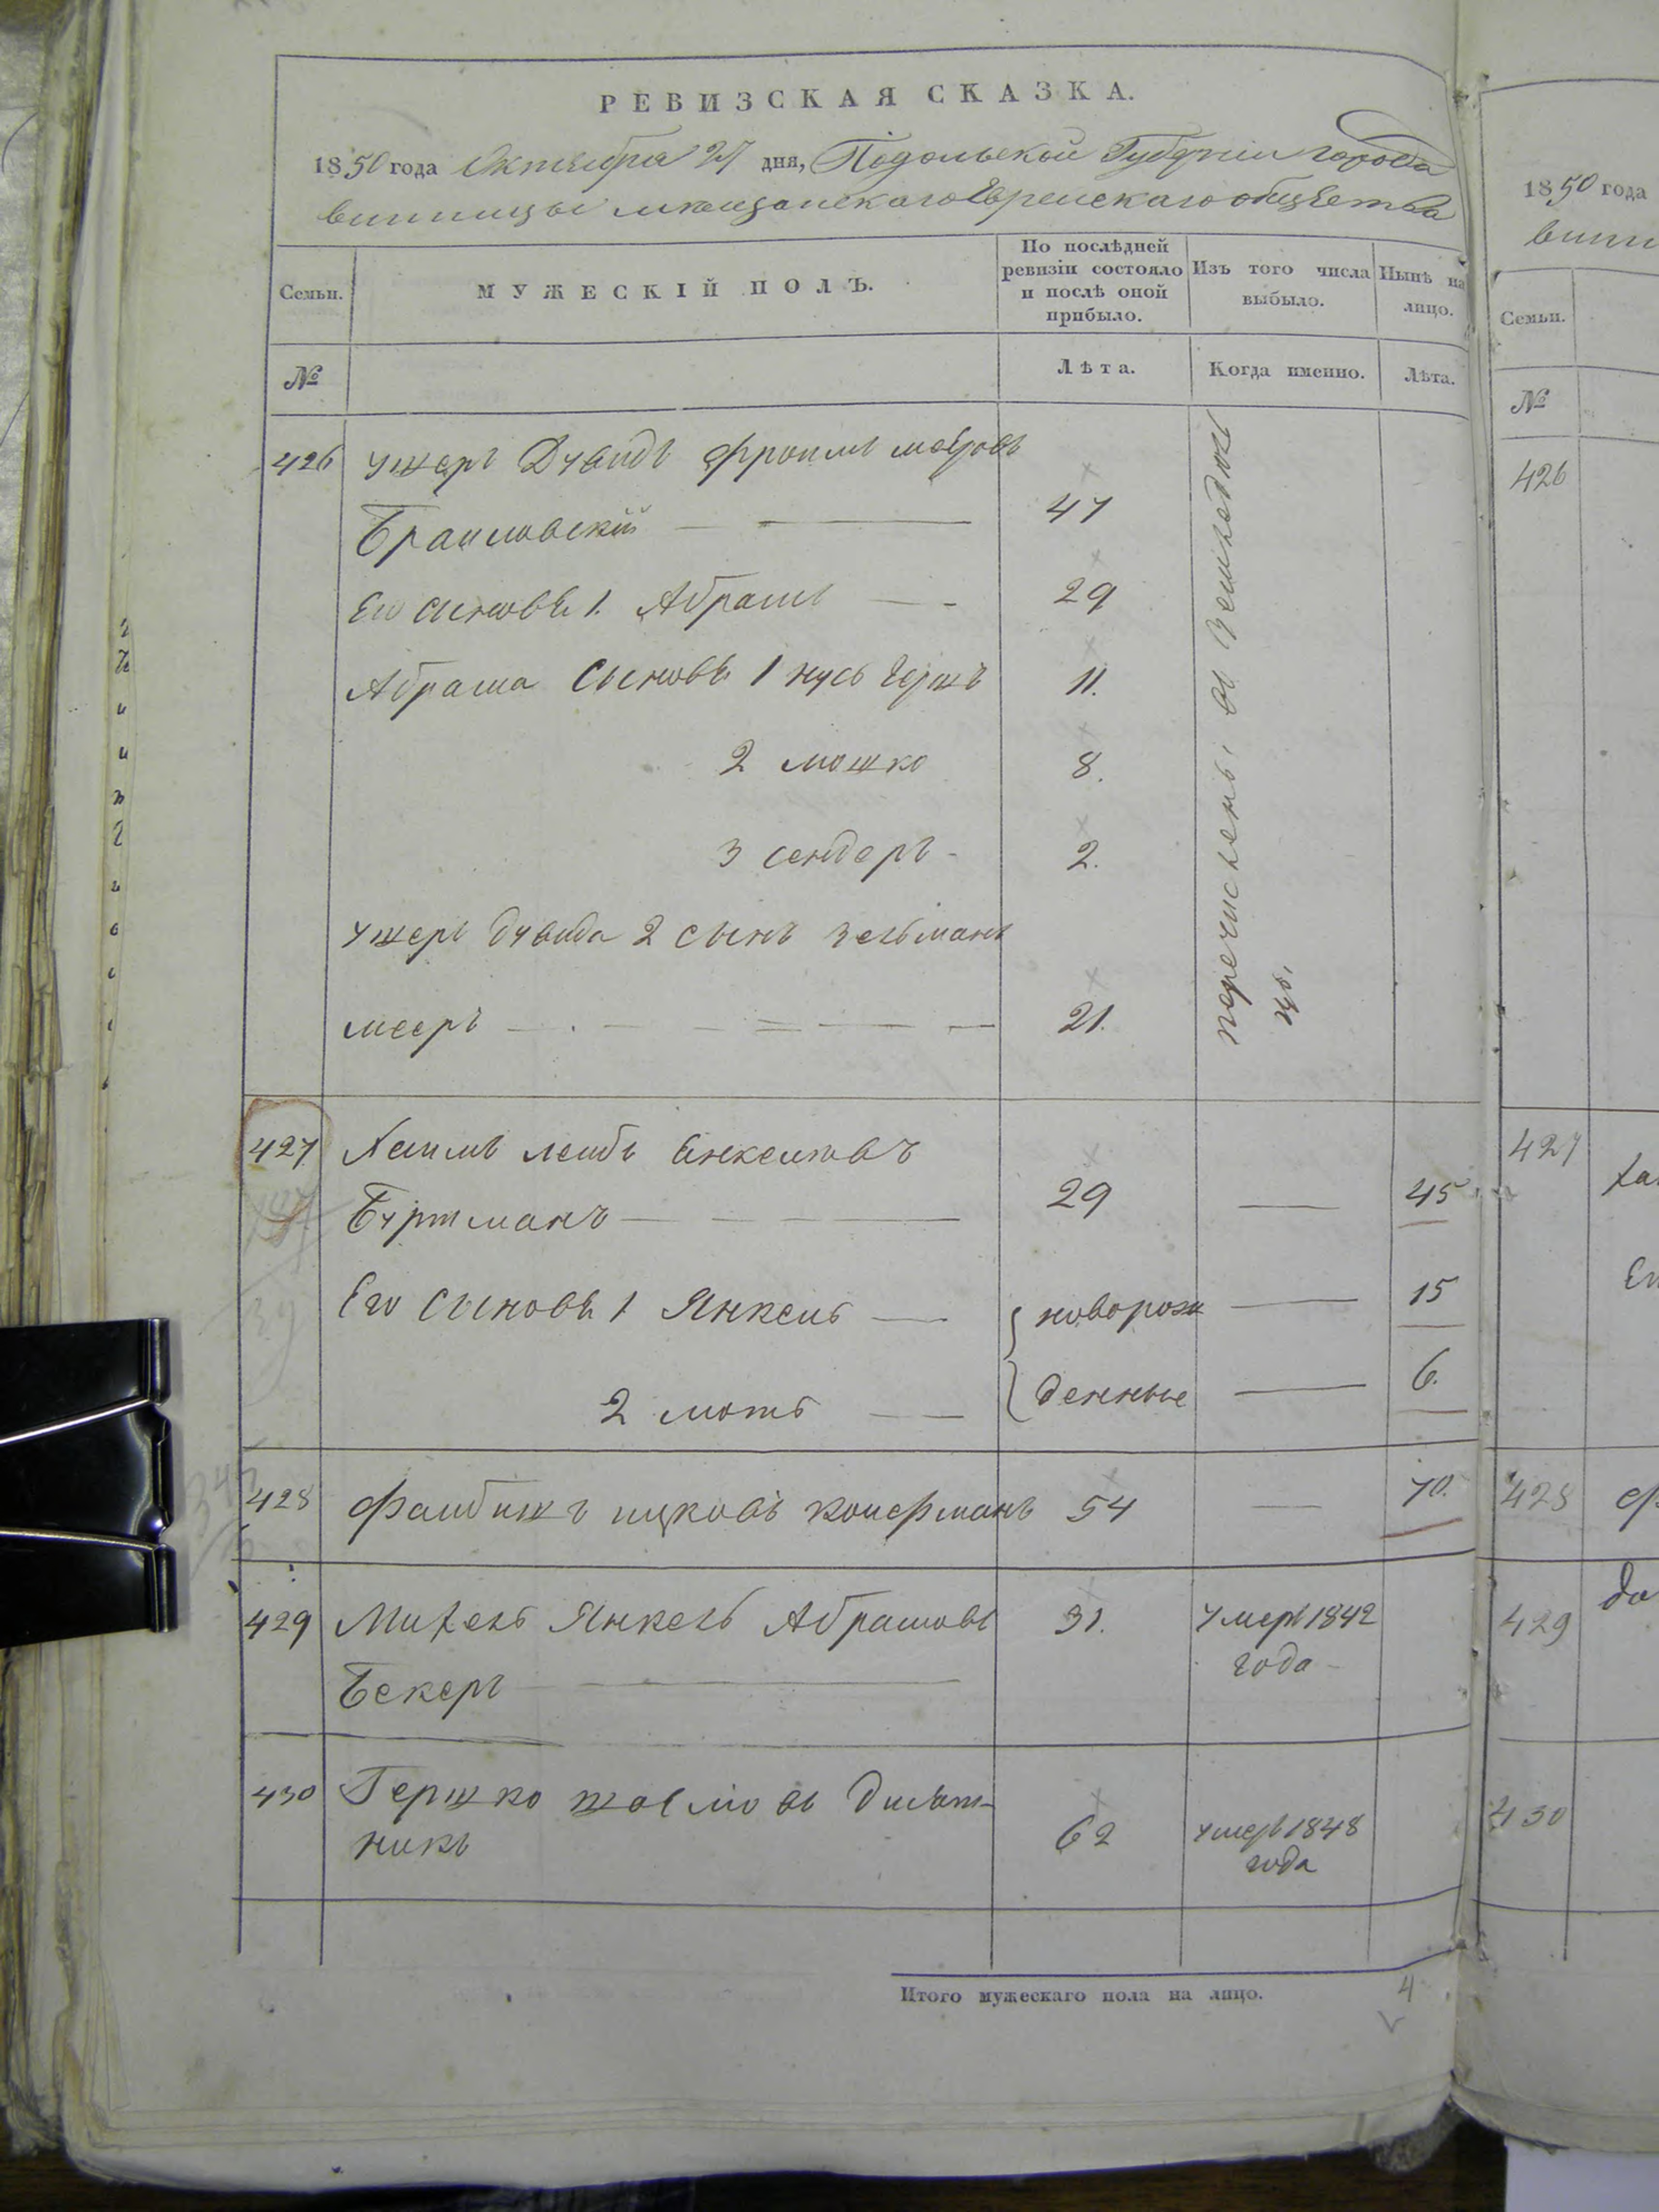 РЕВИЗСКАЯ СКАЗКА.
1850 года Октября 27 дня, Подольской Губерніи города
винницы мѣщанскаго Еврейскаго общества
Семьи.
МУЖЕСКІЙ ПОЛЪ.
По послѣдней ревизіи состояло и послѣ оной прибыло.
Изъ того числа выбыло.
Нынѣ на лицо.
№
Лѣта.
Когда именно.
Лѣта.
426 ушеръ Дувидъ фроимъ меѣровъ
Браиловскій 47
Его сыновья 1. Абрамъ 29
Абрама Сыновья 1 нусь Гершъ 11.
2 мошко 8.
3 сендеръ 2.
ушеръ дувида 2 сынъ зельманъ
мееръ 21.
перечислены въ Земледель
цы.
427 Хаимъ лейбъ Янкелювъ
Буртманъ 29 45
Его Сыновья 1 Янкель новорож 15
2 моть денные 6.
428 Файбишъ ицковъ Койфманъ 54 70.
429 Михель Янкель Абрамовъ 31. умеръ 1842
Бекеръ года
430 Гершко
никъ 62 умеръ 1848
года
Итого мужескаго пола на лицо. 4
1850 года
вин
Семьи.
№
426
427 Ха
428 Ф
429
430